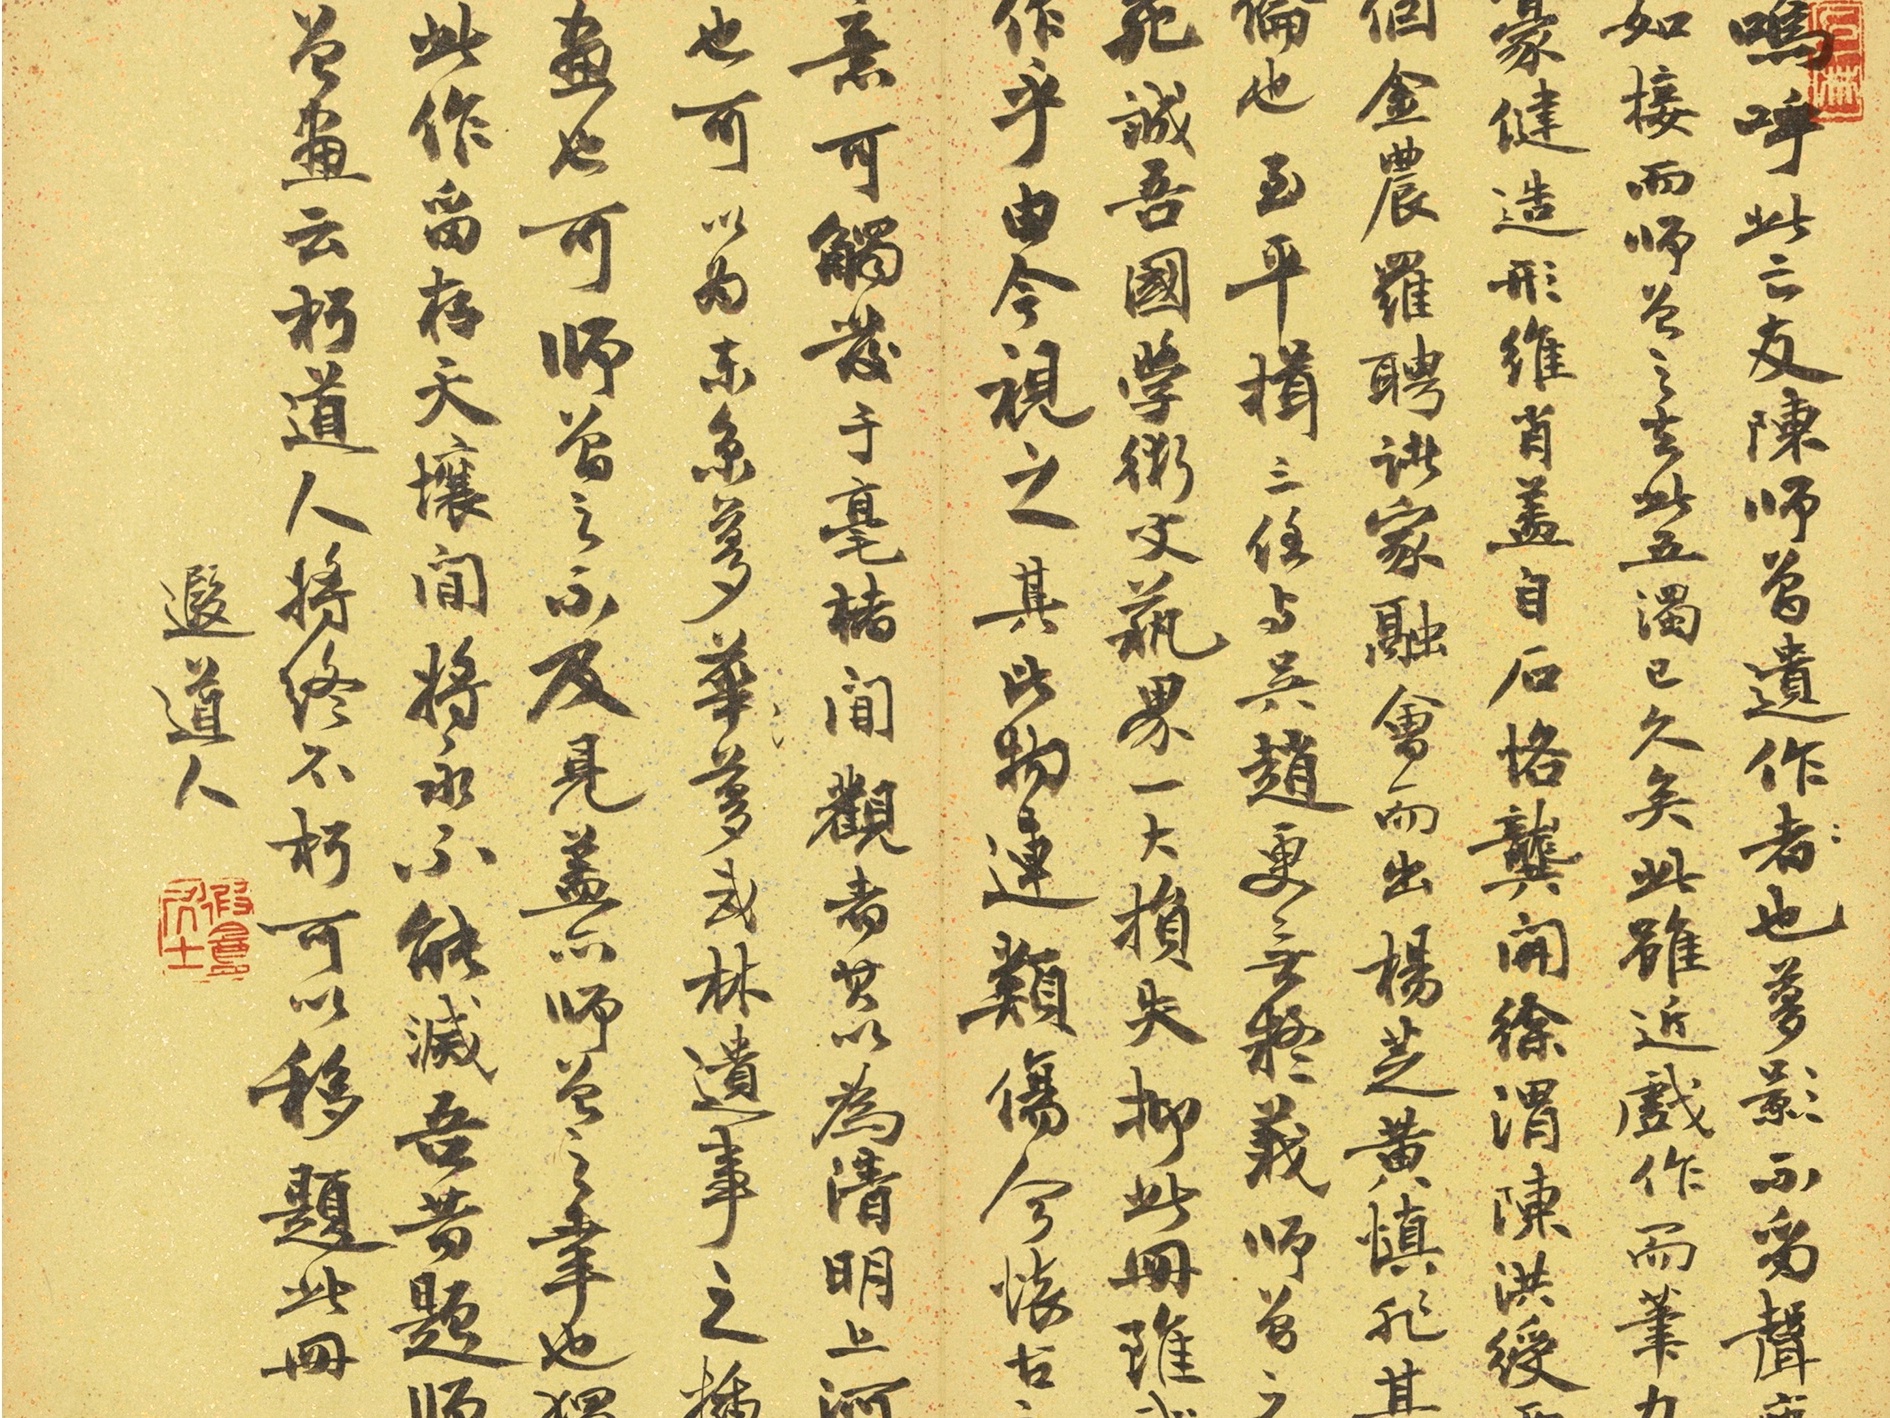 嗚呼此亡友陳師曾遺作者也夢影不留聲
如接而師曾之去此五濁已久矣此雖近戲作而筆力
豪健造形維肖蓋自石恪龔開徐渭陳洪綬
個金農羅聘諸家融會而出楊芝黃慎非其
倫也至平揖三任与吳趙更無疑義師曾之
死誠吾國學術文藝界一大損失抑此冊雖或
作乎由今視之其比物連類傷今懷古
意可觸發于毫楮間觀者苟以為清明上河
也可以為東京夢華夢武林遺事之插
畫也可師曾之不及見蓋亦師曾之幸也猶
此作留存天壤間將永不能滅吾昔題師
曾畫云朽道人將終不朽可以移題此冊
遐道人
遐翁